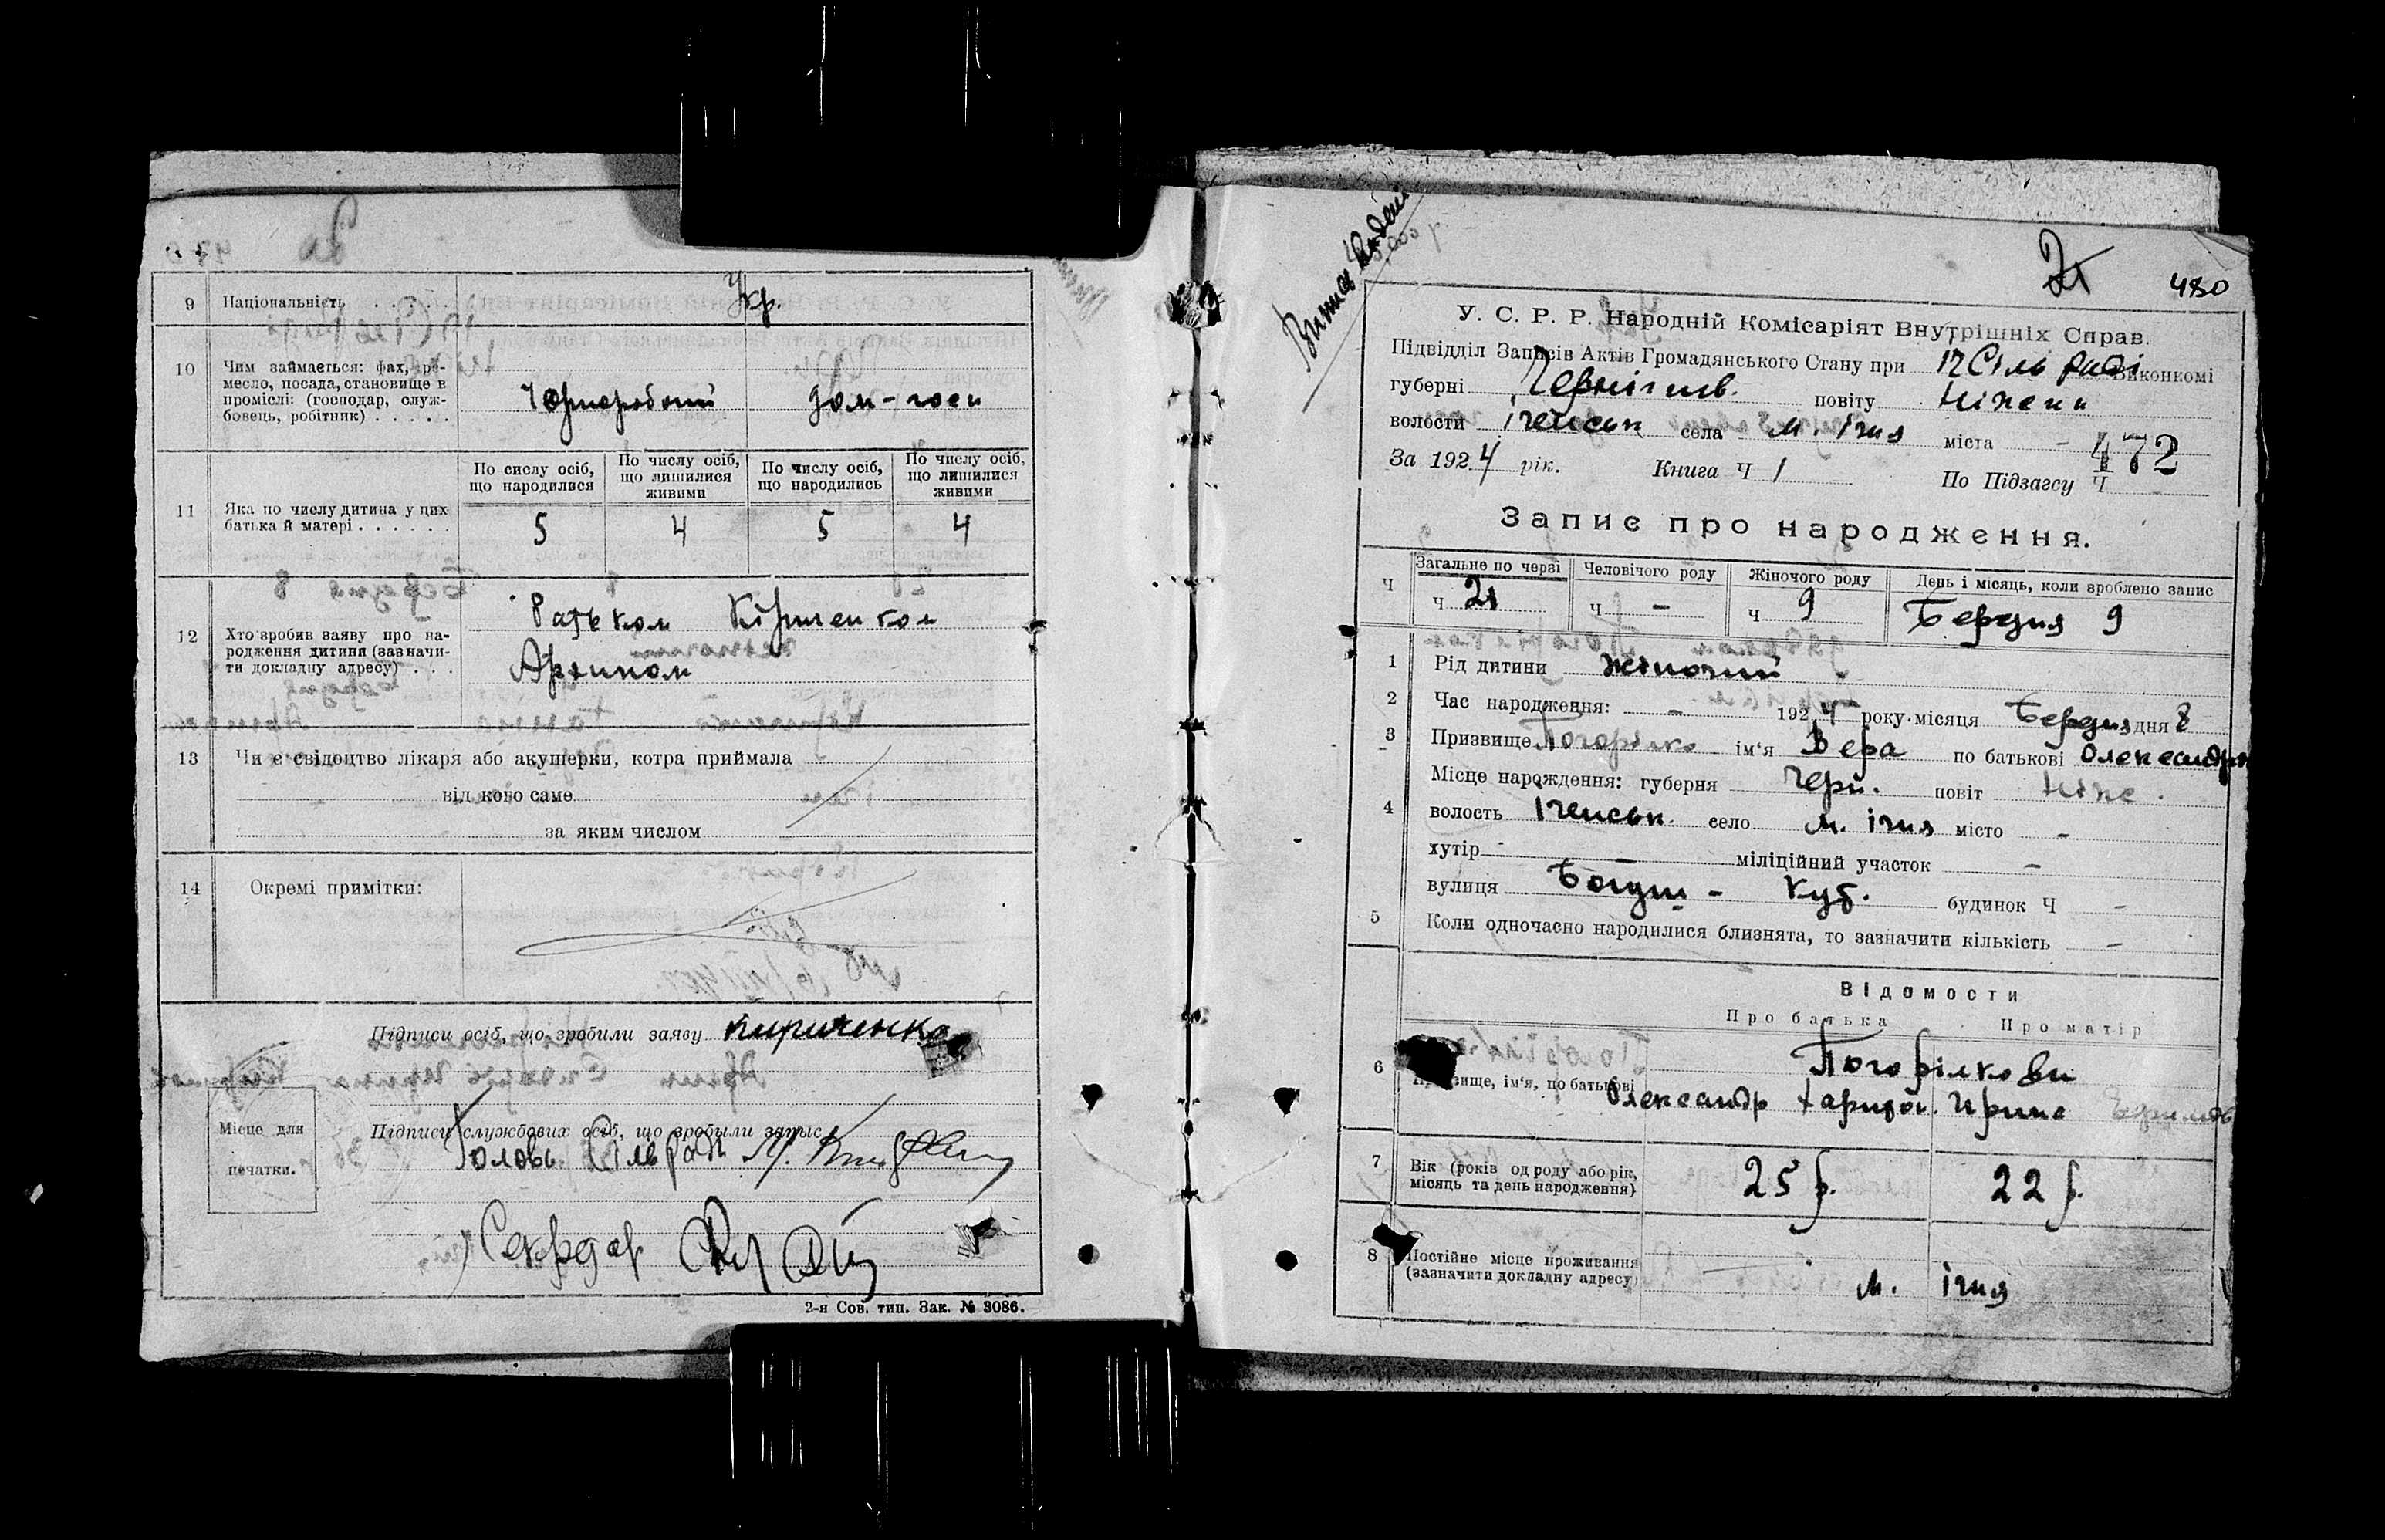 9 Національність . . . . . . Укр.
10 Чим займається: фах, ре-
месло, посада, становище в
проміслі: (господар, служ-
бовець, робітник) . . . . . Чорноробочий дом-госп
11 Яка по числу дитина у цих
батька й матері . . . . . .
По сислу осіб, що народилися
По числу осіб, що лишилися живими
По числу осіб, що народились
По числу осіб, що лишилися живими
5 4 5 4
12 Хто зробив заяву про на-
родження дитини (зазначи-
ти докладну адресу) . . .
Батьком Кириченком
Архипом
13 Чи є свідоцтво лікаря або акушерки, котра приймала
від кого саме
за яким числом
14 Окремі примітки:
Підписи осіб, що зробили заяву Кириченко
Місце для
печатки.
Підписи службових осіб, що зробыли запыс
Голова Сільради
Секретар
2-я Сов. тип. Зак. № 3086.
21 480
У. С. Р. Р. Народній Комісаріят Внутрішніх Справ.
Підвідділ Записів Актів Громадянського Стану при Сільраді Виконкомі
губерні Чернігив. повіту Ніжени
волости Іченськ села м. Ічня міста -
472
За 1924 рік. Книга Ч 1 По Підзагсу Ч
Запис про народження.
Ч Загальне по черзі Человічого роду Жіночого роду День і місяць, коли зроблено запис
Ч 21 Ч - Ч 9 Березня 9
1 Рід дитини жіночий
2 Час народження: - 1924 року місяця Березня дня 8
3 Призвище Погорілко ім‘я Вера по батькові Олександр
4 Місце нарождення: губерня Черн. повіт Ніж.
волость Іченськ. село м. Ічня місто -
хутір - міліційний участок -
вулиця Богуш - Куб. будинок Ч -
5 Коли одночасно народилися близнята, то зазначити кількість -
Відомости
Про батька Про матір
6 Призвище, ім‘я, по батькові
Погорілкови
Олександр Харитон. Ирина
7 Вік (років од роду або рік,
місяць та день народження) 25 р. 22 р.
8 Постійне місце проживання
(зазначити докладну адресу) м. Ічня